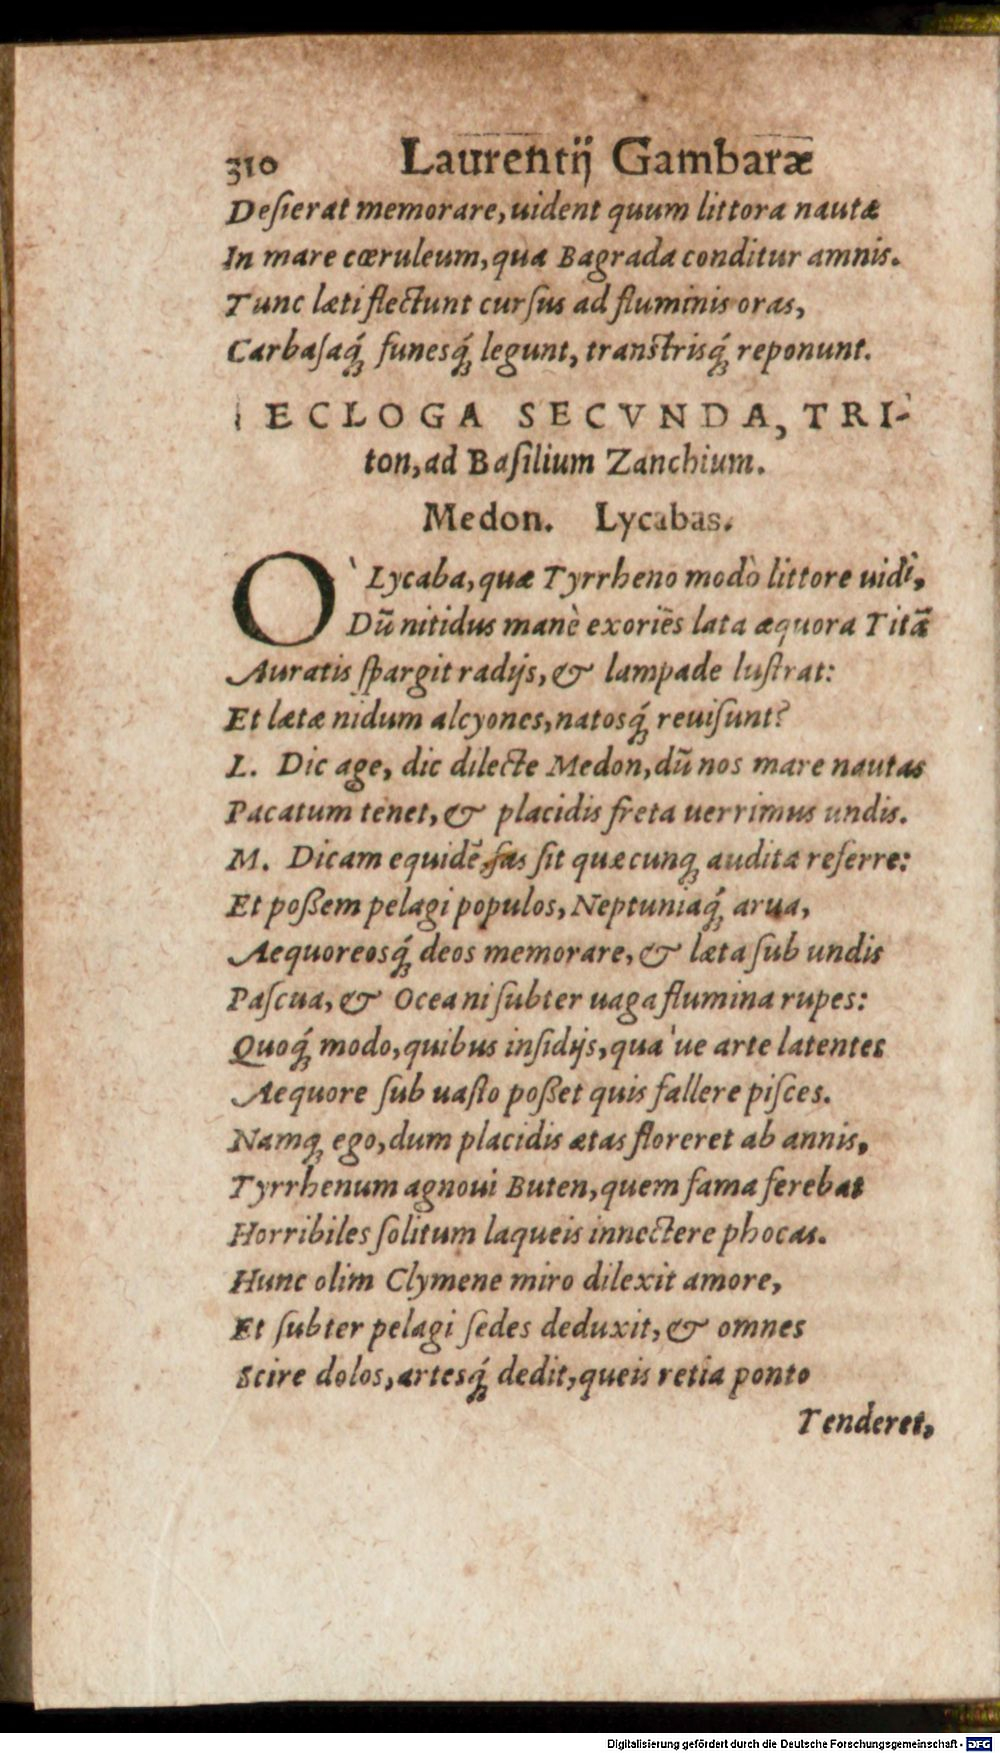 310 Laurentij Gambaræ
Desierat memorare, uident quum littora nautæ
In mare cœruleum, qua Bagrada conditur amnis.
Tunc læti flectunt cursus ad fluminis oras,
Carbasaq́; funesq́; legunt, transtrisq́; reponunt.
ECLOGA SECVNDA, TRI-
ton, ad Basilium Zanchium.
Medon. Lycabas.
O` Lycaba, quæ Tyrrheno modò littore uidi,
Dū nitidus manè exoriēs lata æquora Titā
Auratis spargit radijs, & lampade lustrat:
Et lætæ nidum alcyones, natosq́; reuisunt?
L. Dic age, dic dilecte Medon, dū nos mare nautas
Pacatum tenet, & placidis freta uerrimus undis.
M. Dicam equidē, fas sit quæcunq; audita referre:
Et poßem pelagi populos, Neptuniaq́; arua,
Aequoreosq́; deos memorare, & læta sub undis
Pascua, & Oceani subter uaga flumina rupes:
Quoq́; modo, quibus insidijs, qua ue arte latentes
Aequore sub uasto poßet quis fallere pisces.
Namq; ego, dum placidis ætas floreret ab annis,
Tyrrhenum agnoui Buten, quem fama ferebat
Horribiles solitum laqueis innectere phocas.
Hunc olim Clymene miro dilexit amore,
Et subter pelagi sedes deduxit, & omnes
Scire dolos, artesq́; dedit, queis retia ponto
Tenderet,
Digitalisierung gefördert durch die Deutsche Forschungsgemeinschaft - DFG